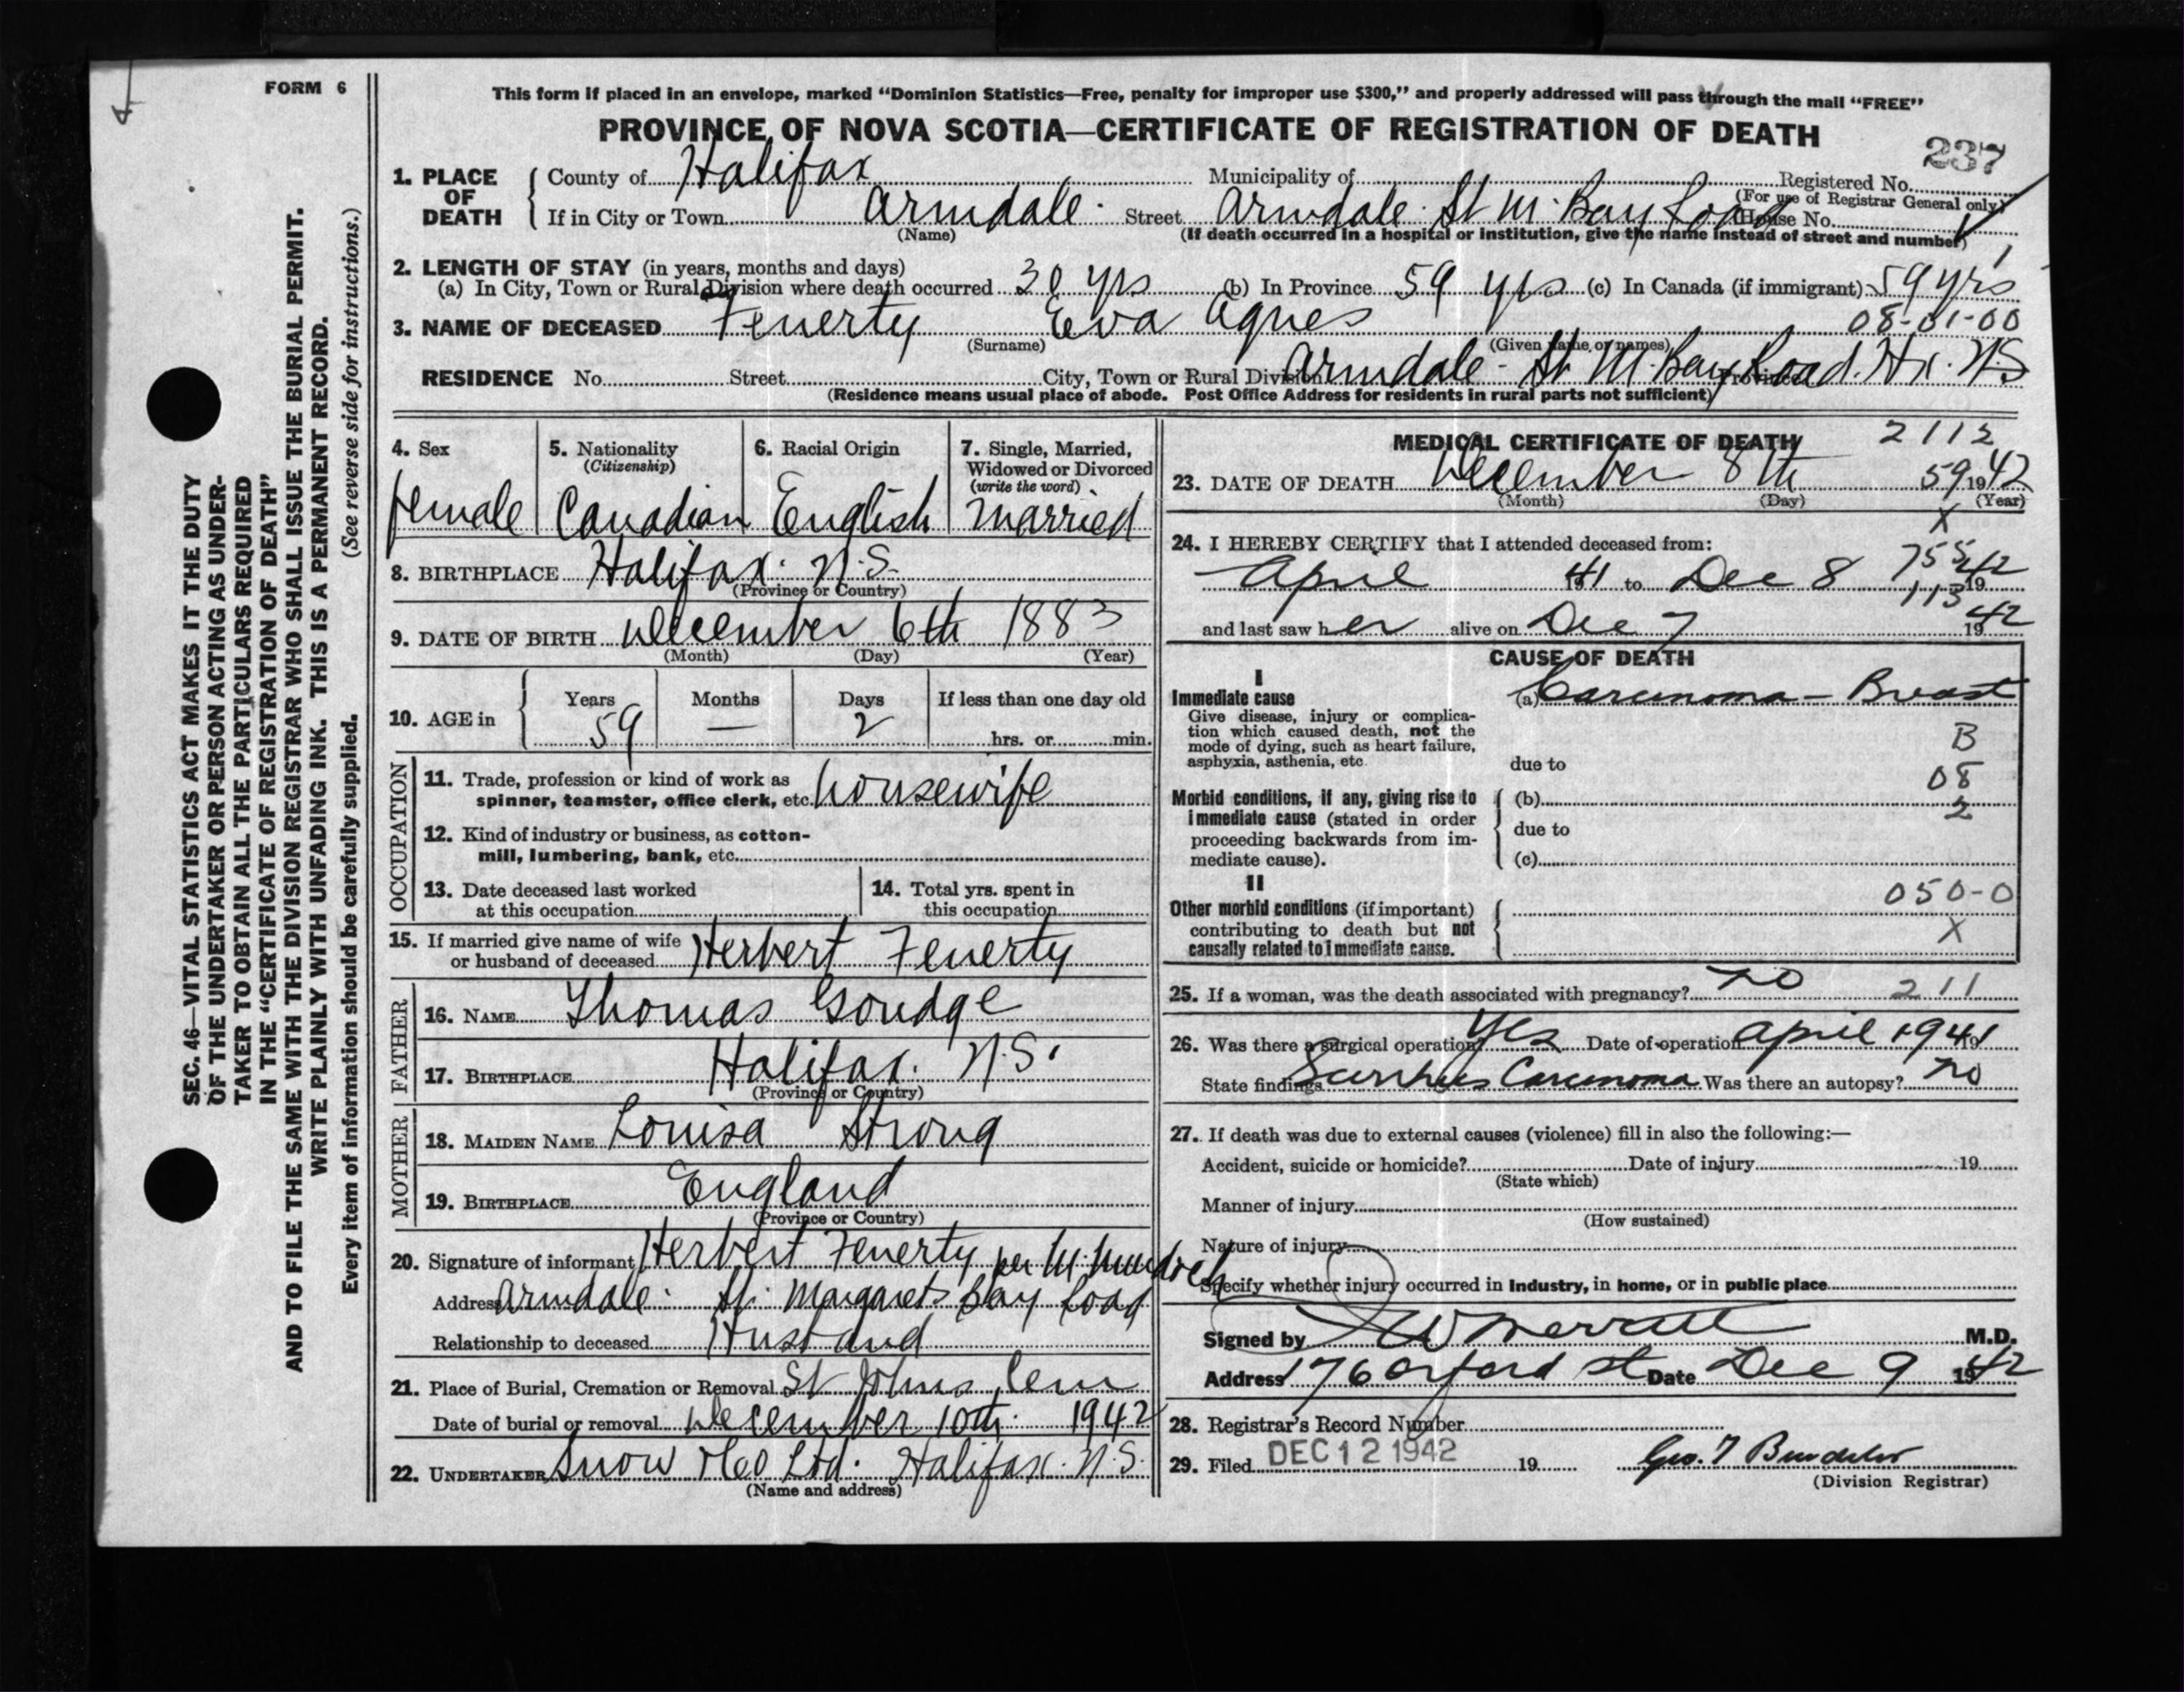 FORM 6
This form if placed in an envelope, marked "Dominion Statistics—Free, penalty for improper use $300," and properly addressed will pass through the mail "FREE"
PROVINCE OF NOVA SCOTIA—CERTIFICATE OF REGISTRATION OF DEATH
237
1. PLACE OF DEATH
County of Halifax Municipality of Registered No.
(For use of Registrar General only)
If in City or Town Armdale. Street Armdale St M. Bay Road House No.
(Name) (If death occurred in a hospital or institution, give the name instead of street and number)
2. LENGTH OF STAY (in years, months and days)
(a) In City, Town or Rural Division where death occurred 30 yrs (b) In Province 59 yrs (c) In Canada (if immigrant) 59 yrs
3. NAME OF DECEASED Fenerty Eva Agnes 08-01-00
(Surname) (Given name, or names)
RESIDENCE No. Street City, Town or Rural Division Armdale - St. M. Bay Road. Hx. N.S Province
(Residence means usual place of abode. Post Office Address for residents in rural parts not sufficient)
4. Sex
female
5. Nationality
(Citizenship)
Canadian
6. Racial Origin
English
7. Single, Married, Widowed or Divorced
(write the word)
Married
8. BIRTHPLACE Halifax. N.S.
(Province or Country)
9. DATE OF BIRTH December 6th 1883
(Month) (Day) (Year)
10. AGE in
Years Months Days If less than one day old
59 — 2 hrs. or min.
OCCUPATION
11. Trade, profession or kind of work as
spinner, teamster, office clerk, etc. housewife
12. Kind of industry or business, as cotton-
mill, lumbering, bank, etc.
13. Date deceased last worked
at this occupation
14. Total yrs. spent in
this occupation
15. If married give name of wife
or husband of deceased Herbert Fenerty
FATHER
16. NAME Thomas Goudge
17. BIRTHPLACE Halifax. N.S.
(Province or Country)
MOTHER
18. MAIDEN NAME Louisa Strong
19. BIRTHPLACE England
(Province or Country)
20. Signature of informant Herbert Fenerty per M.
Address Armdale. St. Margarets Bay Road
Relationship to deceased Husband
21. Place of Burial, Cremation or Removal St Johns Cem
Date of burial or removal December 10th. 1942
22. UNDERTAKER Snow & Co Ltd. Halifax. N.S.
(Name and address)
MEDICAL CERTIFICATE OF DEATH 2112
23. DATE OF DEATH December 8th 59 1942
(Month) (Day) (Year)
X
24. I HEREBY CERTIFY that I attended deceased from:
755
April 1941 to Dec 8 1942
113
and last saw her alive on Dec 7 1942
CAUSE OF DEATH
I
Immediate cause
Give disease, injury or complica-
tion which caused death, not the
mode of dying, such as heart failure,
asphyxia, asthenia, etc.
(a) Carcinoma - Breast
B
due to
08
Morbid conditions, if any, giving rise to
immediate cause (stated in order
proceeding backwards from im-
mediate cause).
(b)
2
due to
(c)
II
Other morbid conditions (if important)
contributing to death but not
causally related to immediate cause.
050-0
X
25. If a woman, was the death associated with pregnancy? no 211
26. Was there a surgical operation? Yes Date of operation April 1941
State findings Scirrhus Carcinoma Was there an autopsy? no
27. If death was due to external causes (violence) fill in also the following:—
Accident, suicide or homicide? Date of injury 19
(State which)
Manner of injury
(How sustained)
Nature of injury
Specify whether injury occurred in industry, in home, or in public place
Signed by Merritt M.D.
Address 176 Oxford St Date Dec 9 1942
28. Registrar's Record Number
29. Filed DEC 12 1942 19
(Division Registrar)
SEC. 46—VITAL STATISTICS ACT MAKES IT THE DUTY
OF THE UNDERTAKER OR PERSON ACTING AS UNDER-
TAKER TO OBTAIN ALL THE PARTICULARS REQUIRED
IN THE "CERTIFICATE OF REGISTRATION OF DEATH"
AND TO FILE THE SAME WITH THE DIVISION REGISTRAR WHO SHALL ISSUE THE BURIAL PERMIT.
WRITE PLAINLY WITH UNFADING INK. THIS IS A PERMANENT RECORD.
Every item of information should be carefully supplied. (See reverse side for instructions.)